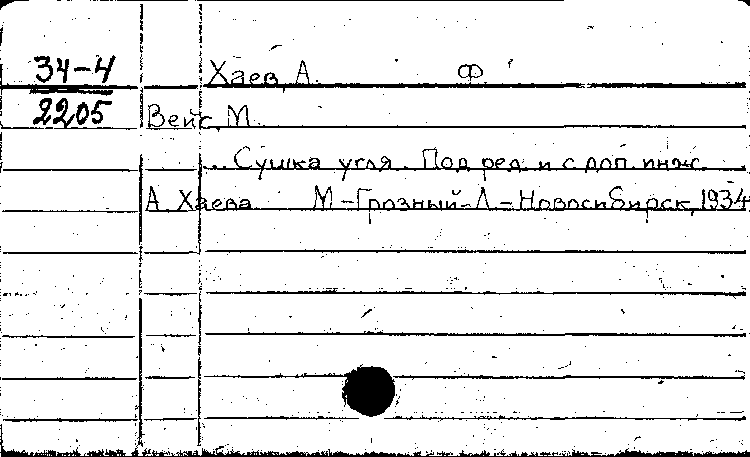 34-4 Хаев, А. Ф
2205 Вейс, М.
... Сушка угля. Под ред. и с доп. инж.
А. Хаева. М-Грозный-Л-Новосибирск, 1934